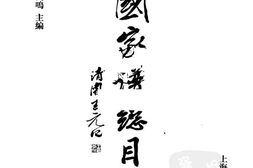 鳴 主編
國家譜總目
清園王元化
上海